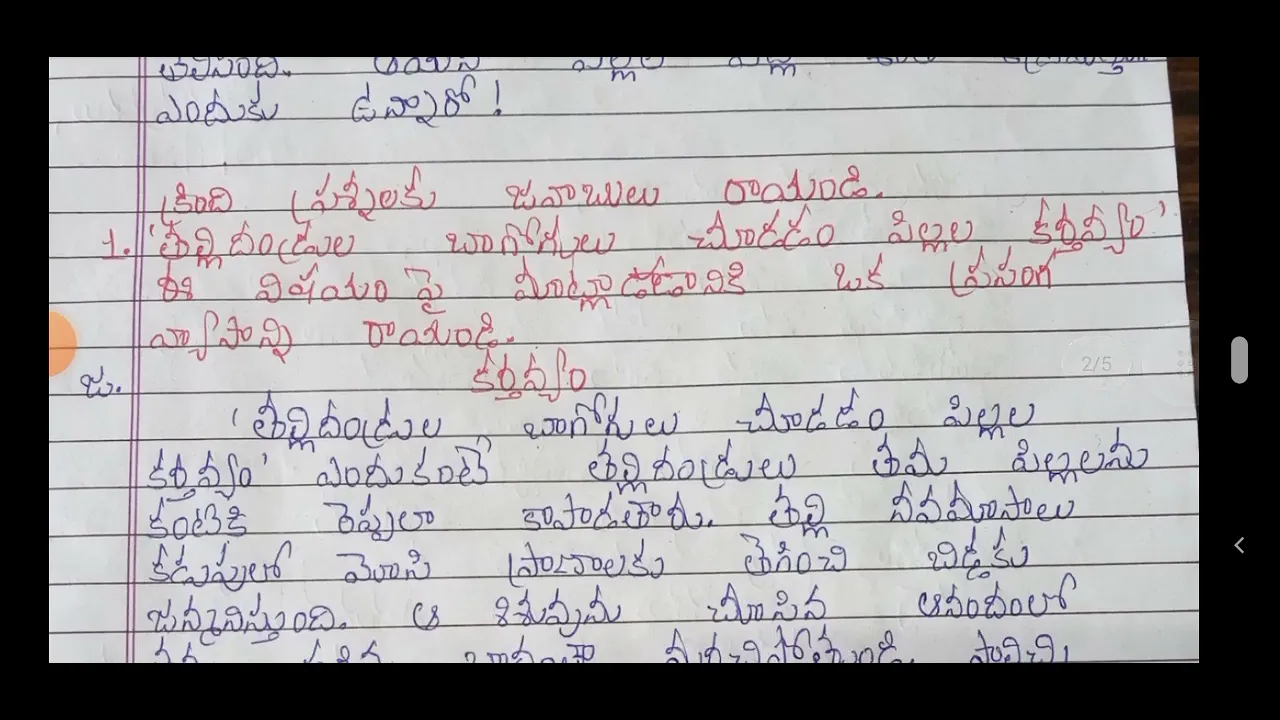 ఎందుకు ఉన్నారో!
క్రింది ప్రశ్నలకు జవాబులు రాయండి.
1. 'తల్లిదండ్రుల బాగోగులు చూడడం పిల్లల కర్తవ్యం'
ఈ విషయంపై మాట్లాడటానికి ఒక ప్రసంగ
వ్యాసాన్ని రాయండి.
కర్తవ్యం
2/5
జ.
'తల్లిదండ్రుల బాగోగులు చూడడం పిల్లల
కర్తవ్యం' ఎందుకంటే తల్లిదండ్రులు తమ పిల్లలను
కంటికి రెప్పలా కాపాడుతారు. తల్లి నవమాసాలు
కడుపులో మోసి ప్రాణాలకు తెగించి బిడ్డకు
జన్మనిస్తుంది. ఆ శిశువును చూసిన ఆనందంలో